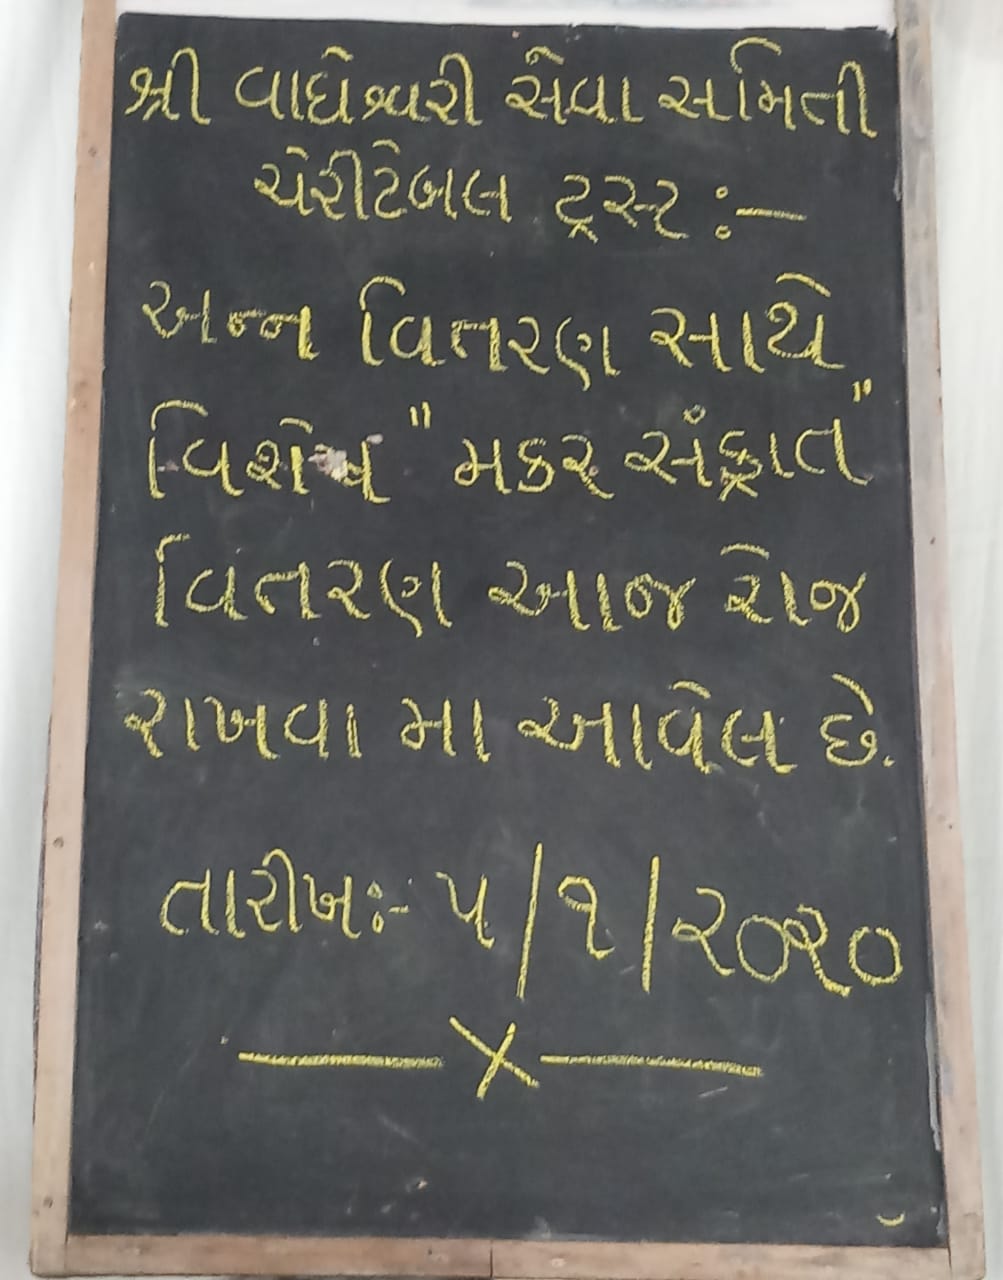 શ્રી વાઘેશ્વરી સેવા સમિતી
ચેરીટેબલ ટ્રસ્ટ :-
અન્ન વિતરણ સાથે
વિશેષ "મકર સંક્રાત"
વિતરણ આજ રોજ
રાખવા મા આવેલ છે.
તારીખઃ- ૫/૧/૨૦૨૦
—— X ——